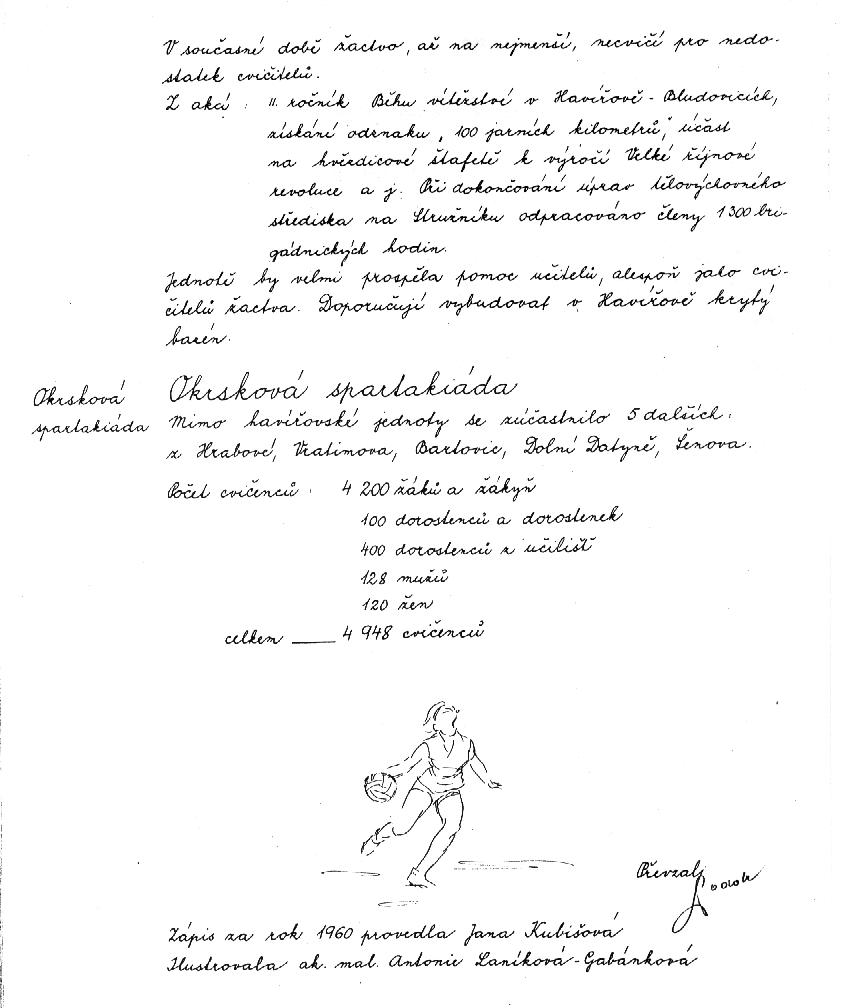 V současné době žactvo, až na nejmenší, necvičí pro nedo-
statek cvičitelů.
Z akcí: II. ročník Běhu vítězství v Havířově-Bludovicích,
získání odznaku „100 jarních kilometrů," účast
na hvězdicové štafetě k výročí Velké říjnové
revoluce a j. Při dokončování úprav tělovýchovného
střediska na Stružníku odpracováno členy 1300 bri-
gádnických hodin.
Jednotě by velmi prospěla pomoc učitelů, alespoň jako cvi-
čitelů žactva. Doporučují vybudovat v Havířově krytý
bazén.
Okrsková
spartakiáda
Okrsková spartakiáda
Mimo havířovské jednoty se zúčastnilo 5 dalších:
z Hrabové, Vratimova, Bartovic, Dolní Datyně, Šenova.
Počet cvičenců: 4 200 žáků a žákyň
100 dorostenců a dorostenek
400 dorostenců z učilišť
128 mužů
120 žen
celkem ____ 4 948 cvičenců
Převzal:
Zápis za rok 1960 provedla Jana Kubišová
Ilustrovala ak. mal. Antonie Laníková-Gabánková